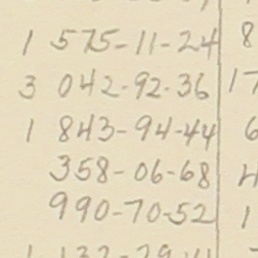 1 575-11-24 8
3 042-92-36 17
1 843-94-44 6
358-06-68 4
990-70-52 1